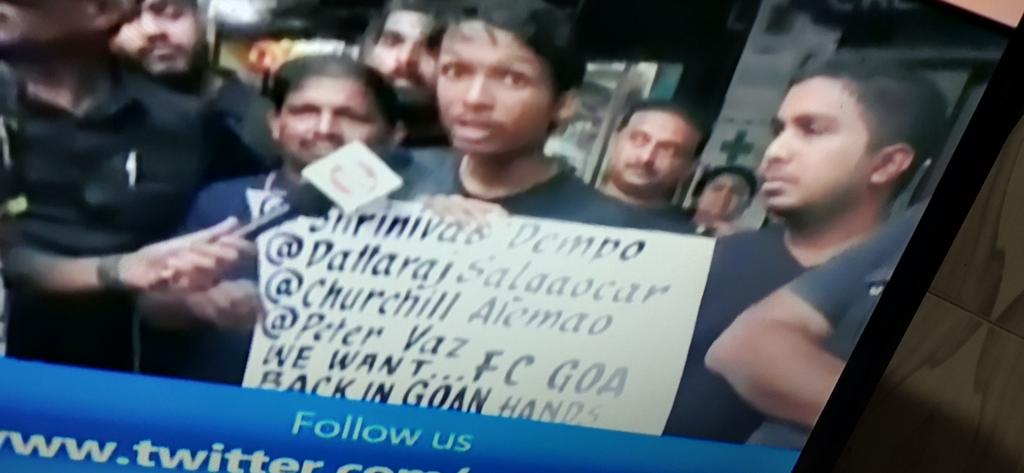 @Shrinivas Dempo
@Dattaraj Salgaocar
@Churchill Alemao
@Peter Vaz
WE WANT... FC GOA
BACK IN GOAN HANDS
Follow us
www.twitter.com/